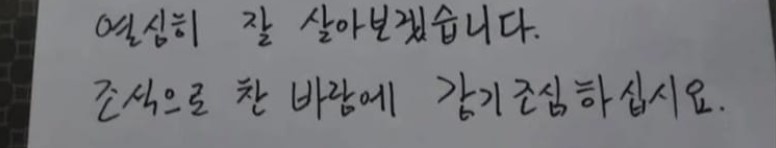 열심히 잘 살아보겠습니다.
조석으로 찬 바람에 감기조심하십시요.